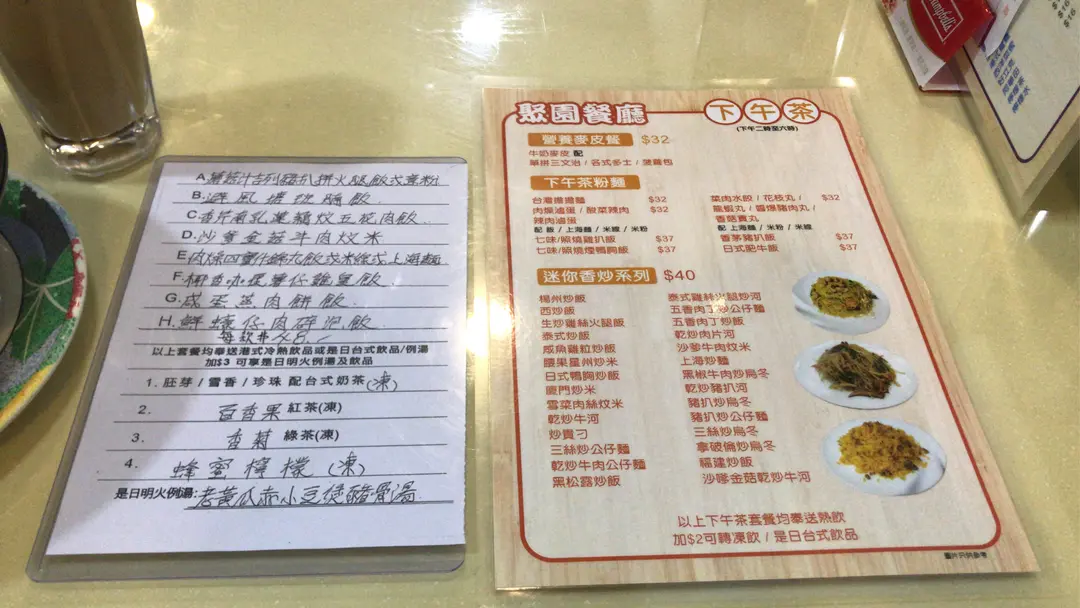 A. 蘑菇汁吉列豬扒拼火腿飯或意粉
B. 避風塘
C. 香芋南乳蓮藕炆五花肉飯
D. 沙爹金菇牛肉炆米
E. 肉燥四寶飯或米線或上海麵
F. 椰香咖喱薯仔雞
G. 咸蛋蒸肉餅飯
H. 鮮蠔仔肉碎泡飯
每款#48.
以上套餐均奉送港式冷熱飲品或是日台式飲品/例湯
加$3 可享是日明火例湯及飲品
1. 胚芽 / 雪香 / 珍珠 配台式奶茶(凍)
2. 百香果 紅茶(凍)
3. 香菊 綠茶(凍)
4. 蜂蜜檸檬 (凍)
是日明火例湯: 老黃瓜赤小豆煲豬骨湯
聚園餐廳
下午茶
(下午二時至六時)
營養麥皮餐 $32
牛奶麥皮 配
單拼三文治 / 各式多士 / 菠蘿包
下午茶粉麵
台灣擔擔麵 $32
肉燥滷蛋 / 酸菜辣肉 $32
辣肉滷蛋
配 飯 / 上海麵 / 米線 / 米粉
七味/照燒雞扒飯 $37
七味/照燒煙鴨胸飯 $37
菜肉水餃 / 花枝丸 / $32
龍蝦丸 / 醬爆豬肉丸 /
香菇貢丸
配 上海麵 / 米粉 / 米線
香茅豬扒飯 $37
日式肥牛飯 $37
迷你香炒系列 $40
楊州炒飯
西炒飯
生炒雞絲火腿飯
泰式炒飯
咸魚雞粒炒飯
腰果星州炒米
日式鴨胸炒飯
廈門炒米
雪菜肉絲炆米
乾炒牛河
炒貴刁
三絲炒公仔麵
乾炒牛肉公仔麵
黑松露炒飯
泰式雞絲火腿炒河
五香肉丁炒公仔麵
五香肉丁炒飯
乾炒肉片河
沙爹牛肉炆米
上海炒麵
黑椒牛肉炒烏冬
乾炒豬扒河
豬扒炒烏冬
豬扒炒公仔麵
三絲炒烏冬
拿破倫炒烏冬
福建炒飯
沙嗲金菇乾炒牛河
以上下午茶套餐均奉送熱飲
加$2可轉凍飲 / 是日台式飲品
圖片只供參考
Campbell's
$16
$16